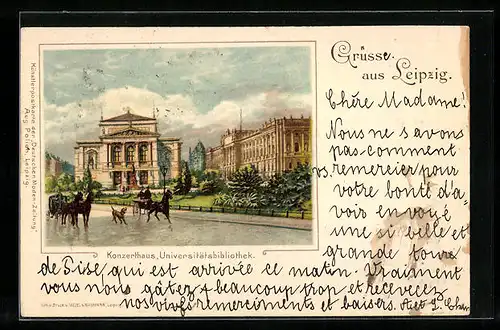 Grüsse
aus Leipzig.
Chère Madame!
Nous ne savons
pas comment vous
remercier pour
votre bonté d'a-
voir envoyé
une si belle et
grande tour
de Pise, qui est arrivée ce matin. Vraiment
vous nous gâtez beaucoup trop et recevez
nos vives remerciments et baisers.
Konzerthaus, Universitätsbibliothek.
Künstlerpostkarte der „Deutschen Moden-Zeitung“
Aug. Polich, Leipzig.